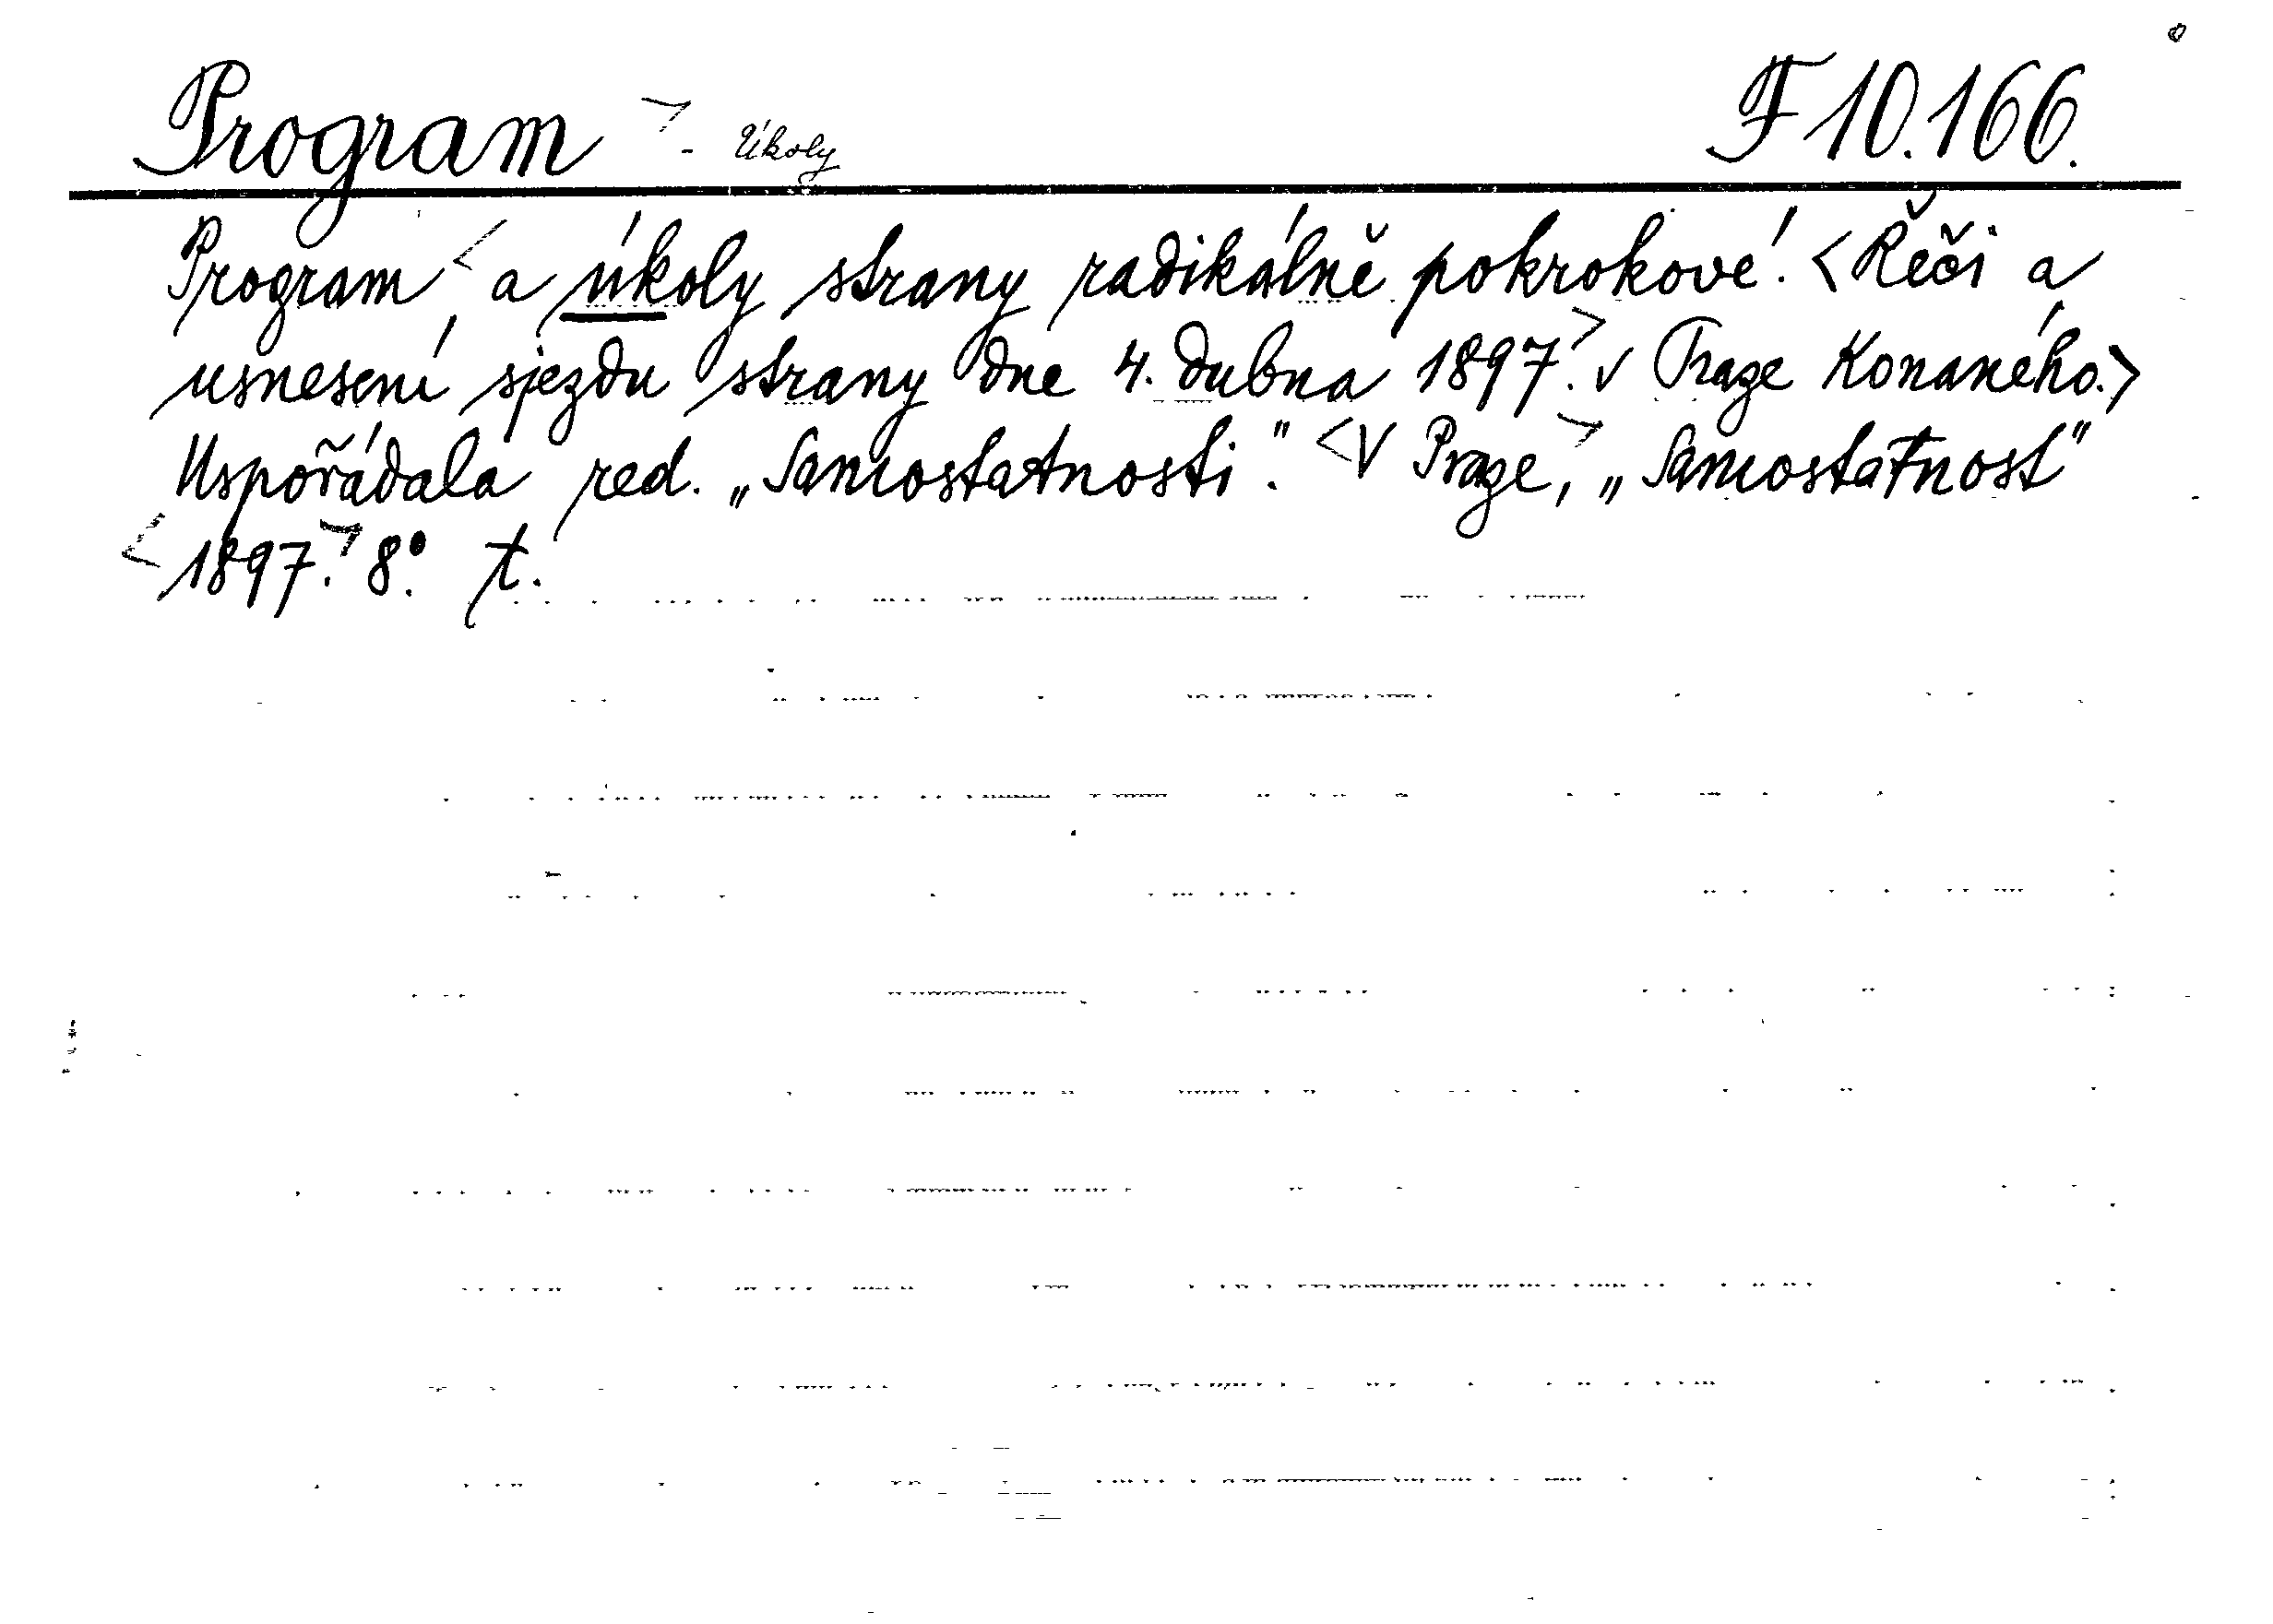 Program > - Úkoly F 10.166.
Program < a úkoly strany radikálně pokrokové. < Řeči a
usnesení sjezdu strany dne 4. dubna 1897. > v Praze konaného. >
Uspořádala red. „Samostatnosti". < V Praze, > „Samostatnost"
< 1897. > 8°. t.